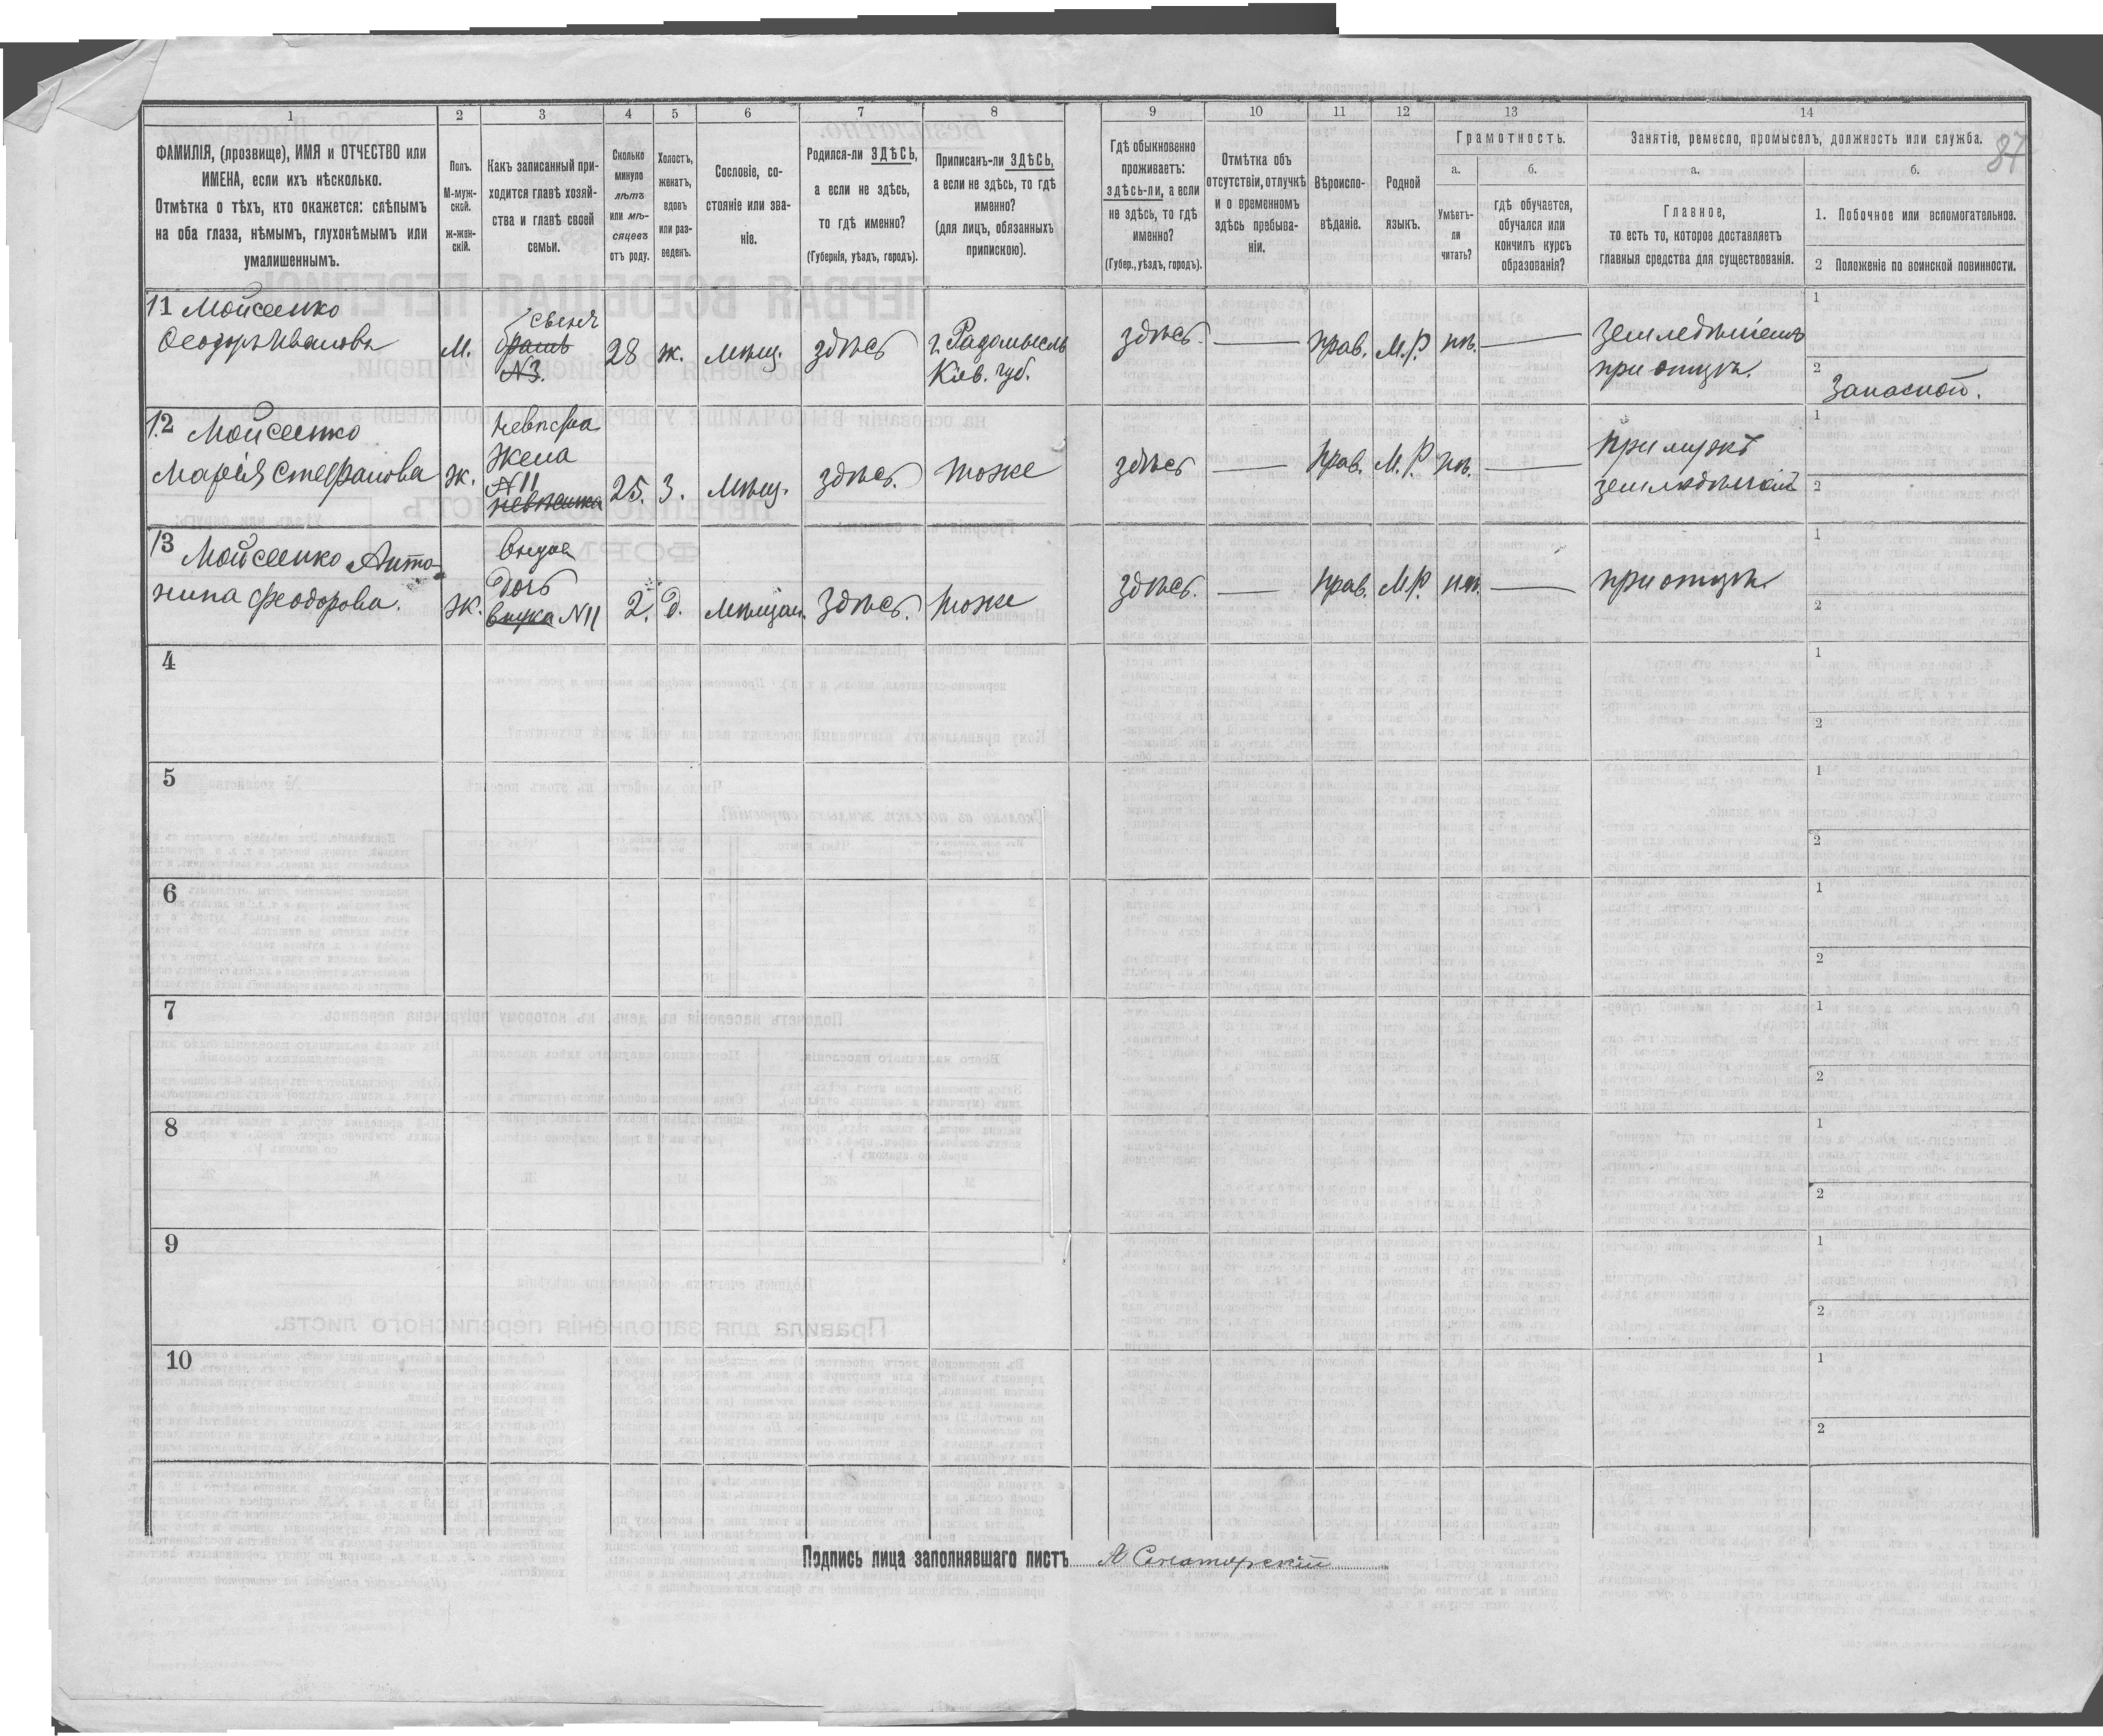 87
1 2 3 4 5 6 7 8 9 10 11 12 13 14
ФАМИЛІЯ, (прозвище), ИМЯ и ОТЧЕСТВО или
ИМЕНА, если ихъ нѣсколько.
Отмѣтка о тѣхъ, кто окажется: слѣпымъ
на оба глаза, нѣмымъ, глухонѣмымъ или
умалишеннымъ.
Полъ.
М-муж-
ской.
ж-жен-
скій.
Какъ записанный при-
ходится главѣ хозяй-
ства и главѣ своей
семьи.
Сколько
минуло
лѣтъ
или мѣ-
сяцевъ
отъ роду.
Холостъ,
женатъ,
вдовъ
или раз-
веденъ.
Сословіе, со-
стояніе или зва-
ніе.
Родился-ли ЗДѢСЬ,
а если не здѣсь,
то гдѣ именно?
(Губернія, уѣздъ, городъ).
Приписанъ-ли ЗДѢСЬ,
а если не здѣсь, то гдѣ
именно?
(для лицъ, обязанныхъ
припискою).
Гдѣ обыкновенно
проживаетъ:
здѣсь-ли, а если
не здѣсь, то гдѣ
именно?
(Губер., уѣздъ, городъ).
Отмѣтка объ
отсутствіи, отлучкѣ
и о временномъ
здѣсь пребыва-
ніи.
Вѣроиспо-
вѣданіе.
Родной
языкъ.
Грамотность.
а.
Умѣетъ-
ли
читать?
б.
гдѣ обучается,
обучался или
кончилъ курсъ
образованія?
Занятіе, ремесло, промыселъ, должность или служба.
а.
Главное,
то есть то, которое доставляетъ
главныя средства для существованія.
б.
1. Побочное или вспомогательное.
2 Положеніе по воинской повинности.
11 Мойсеенко
Феодоръ Ивановъ
М.
братъ
№3.
28
ж.
мѣщ.
здѣсь
г. Радомысль
Кіев. губ.
здѣсь.
прав.
М.Р.
нѣ.
при отцѣ.
1
2
Запасной.
12 Мойсеенко
Марія Стефанова
ж.
невѣстка
жена
№11
невѣстка
25.
З.
мѣщ.
здѣсь.
тоже
здѣсь
прав.
М.Р.
нѣ.
при мужѣ
1
2
13 Мойсеенко Анто-
нина Феодорова.
ж.
внука
дочь
внука №11
2.
д.
мѣщан.
здѣсь.
тоже
здѣсь.
прав.
М.Р.
нѣ.
при отцѣ
1
2
4
1
2
5
1
2
6
1
2
7
1
2
8
1
2
9
1
2
10
1
2
Подпись лица заполнявшаго листъ